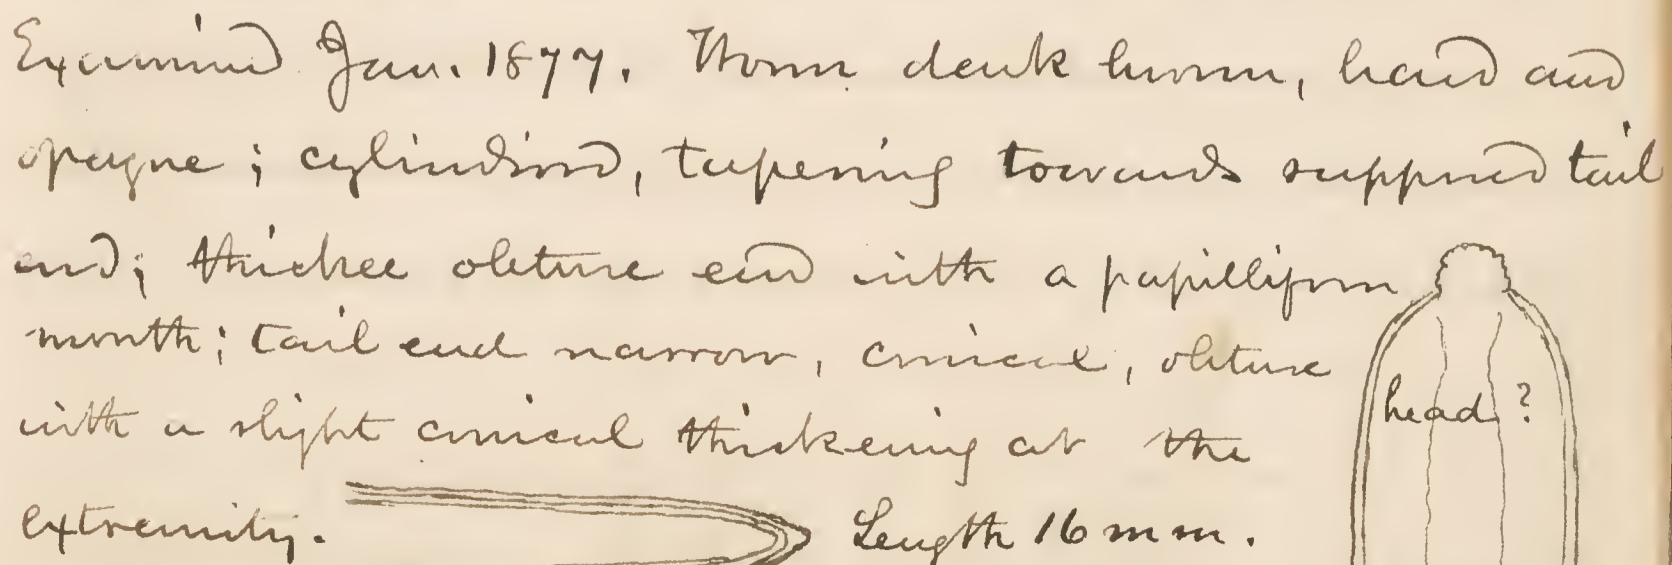 Examined Jan. 1877. Worm dark brown, hard and
opaque; cylindrical, tapering towards supposed tail
end; thicker obtuse end with a papilliform
mouth; tail end narrow, conical, obtuse
head?
with a slight conical thickening at the
extremity. Length 16 mm.